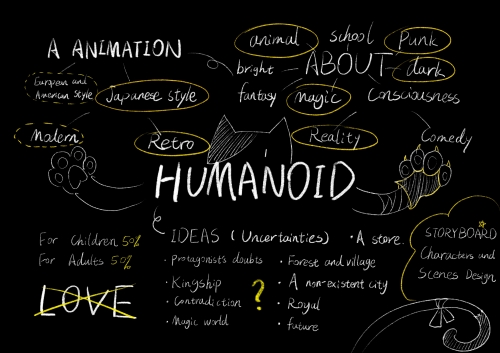 A ANIMATION
European and
American style
Japanese style
Modern
Retro
animal
school
Punk
bright
ABOUT
dark
fantasy
magic
Consciousness
Reality
Comedy
HUMANOID
For Children 50%
For Adults 50%
LOVE
IDEAS (Uncertainties)
· Protagonist's doubts
· Kingship
· Contradiction
· Magic world
?
· A store
· Forest and village
· A non-existent city
· Royal
· future
STORYBOARD
Characters and
Scenes Design